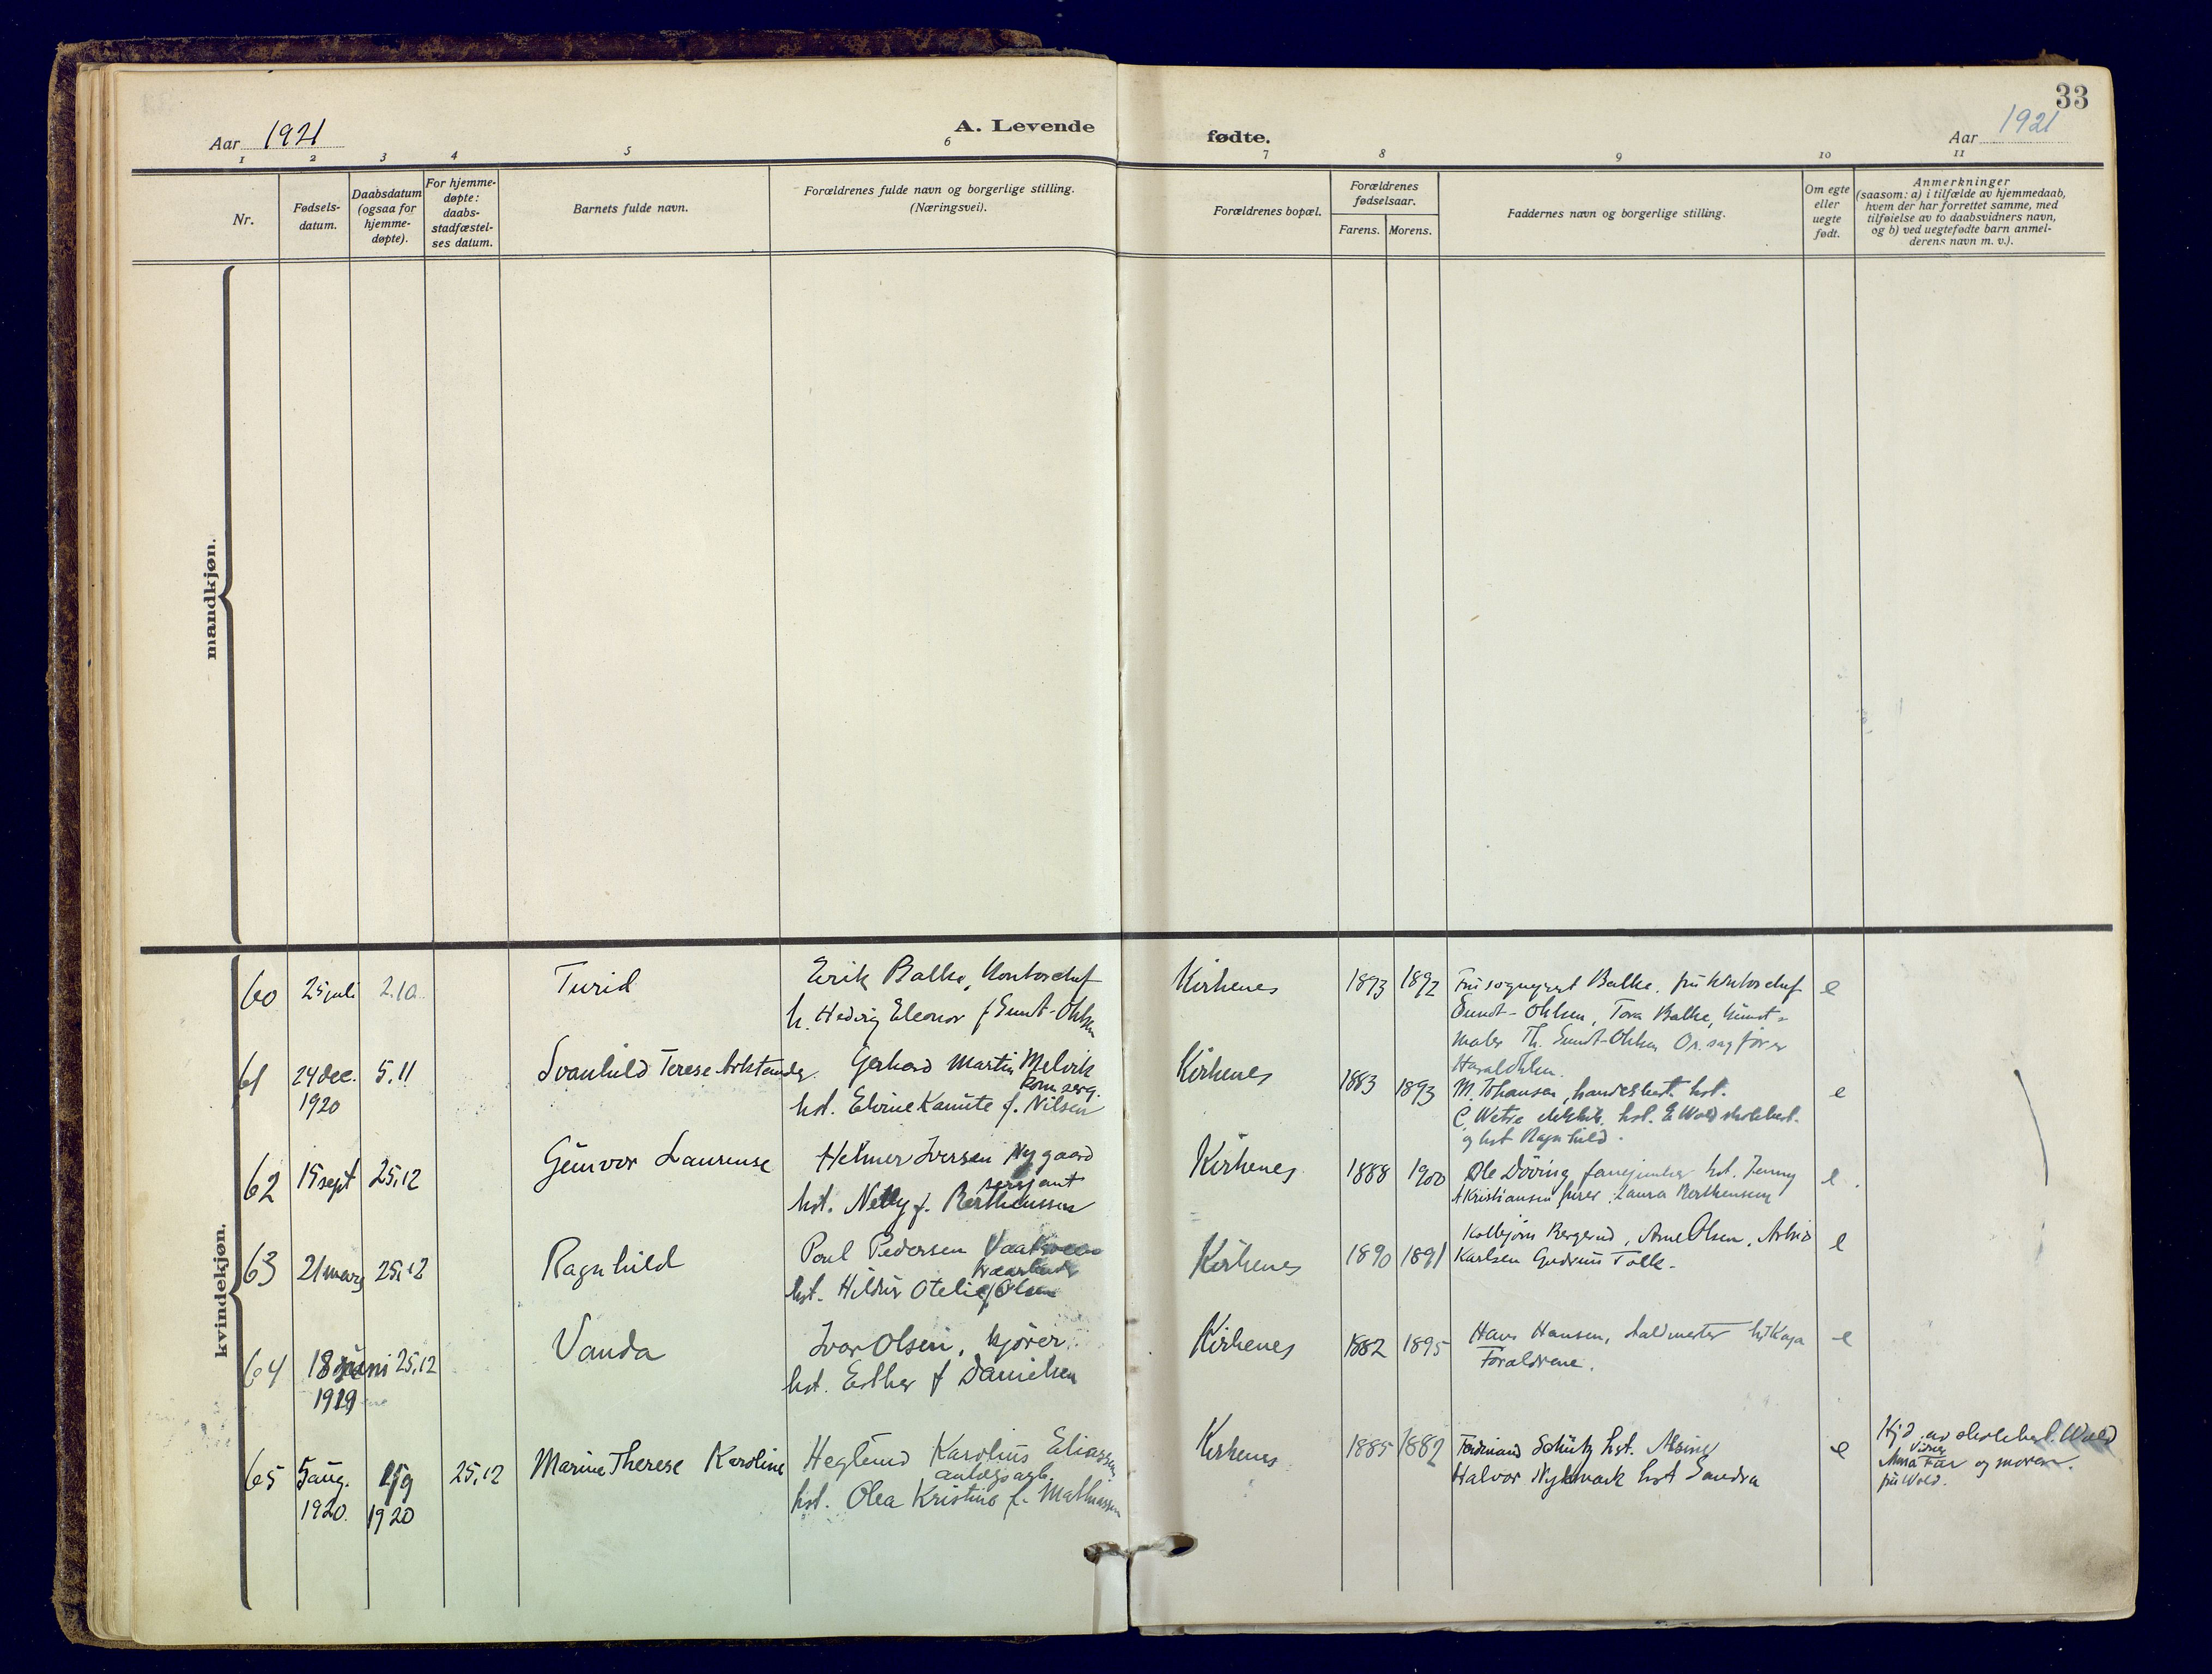 33
Aar 1921
A. Levende fødte.
Aar 1921
1 2 3 4 5 6 7 8 9 10 11
Nr.
Fødsels-
datum.
Daabsdatum
(ogsaa for
hjemme-
døpte).
For hjemme-
døpte:
daabs-
stadfæstel-
ses datum.
Barnets fulde navn.
Forældrenes fulde navn og borgerlige stilling.
(Næringsvei).
Forældrenes bopæl.
Forældrenes
fødselsaar.
Farens. Morens.
Faddernes navn og borgerlige stilling.
Om egte
eller
uegte
født.
Anmerkninger
(saasom: a) i tilfælde av hjemmedaab,
hvem der har forrettet samme, med
tilføielse av to daabsvidners navn,
og b) ved uegtefødte barn anmel-
derens navn m. v.).
mandkjøn.
kvindekjøn.
60 25 juli 2.10 Turid
Erik Balke, Kontorchef
h. Hedvig Eleonor f Sundt-Ohlsen
Kirkenes 1893 1892
Balke, fru Kontorchef
Sundt-Ohlsen, Tora Balke,
maler Th. Sundt-Ohlsen
e
61 24 dec. 5.11 Svanhild Terese
1920
Gerhard Martin Melvik
hst. Elvine f. Nilsen
Kirkenes 1883 1893
M. Johansen, hst.
C. hst. E Wold
og hst Ragnhild.
e
62 15 sept 25.12 Gunvor Laurense
Helmer Iversen Nygaard
sersjant
hst. Nelly f. Bertheussen
Kirkenes 1888 1900
Ole Döving fanejunker hst. Jenny
A Kristiansen furer Laura Bertheussen
e
63 21 mars 25.12 Ragnhild
Poul Pedersen
hst. Hildur Otelie f Olsen
Kirkenes 1890 1891
Kolbjörn Bergerud, Arne Olsen,
Karlsen Gudrun
e
64 18 juni 25.12 Vanda
1919
Ivar Olsen, kjører
hst. Esther f Danielsen
Kirkenes 1882 1895
Hans Hansen, hst Kaja
Forældrene.
e
65 5 aug. 1/9 25.12 Marine Therese Karoline
1920. 1920
Heglund Karolius Eliassen
anlægsarb.
hst. Olea Kristine f. Mathiassen
Kirkenes 1885 1882
Ferdinand Schütz hst.
Halvor Nykmark hst Sandra
e
Kjd. av Wold
og moren.
fru Wold.